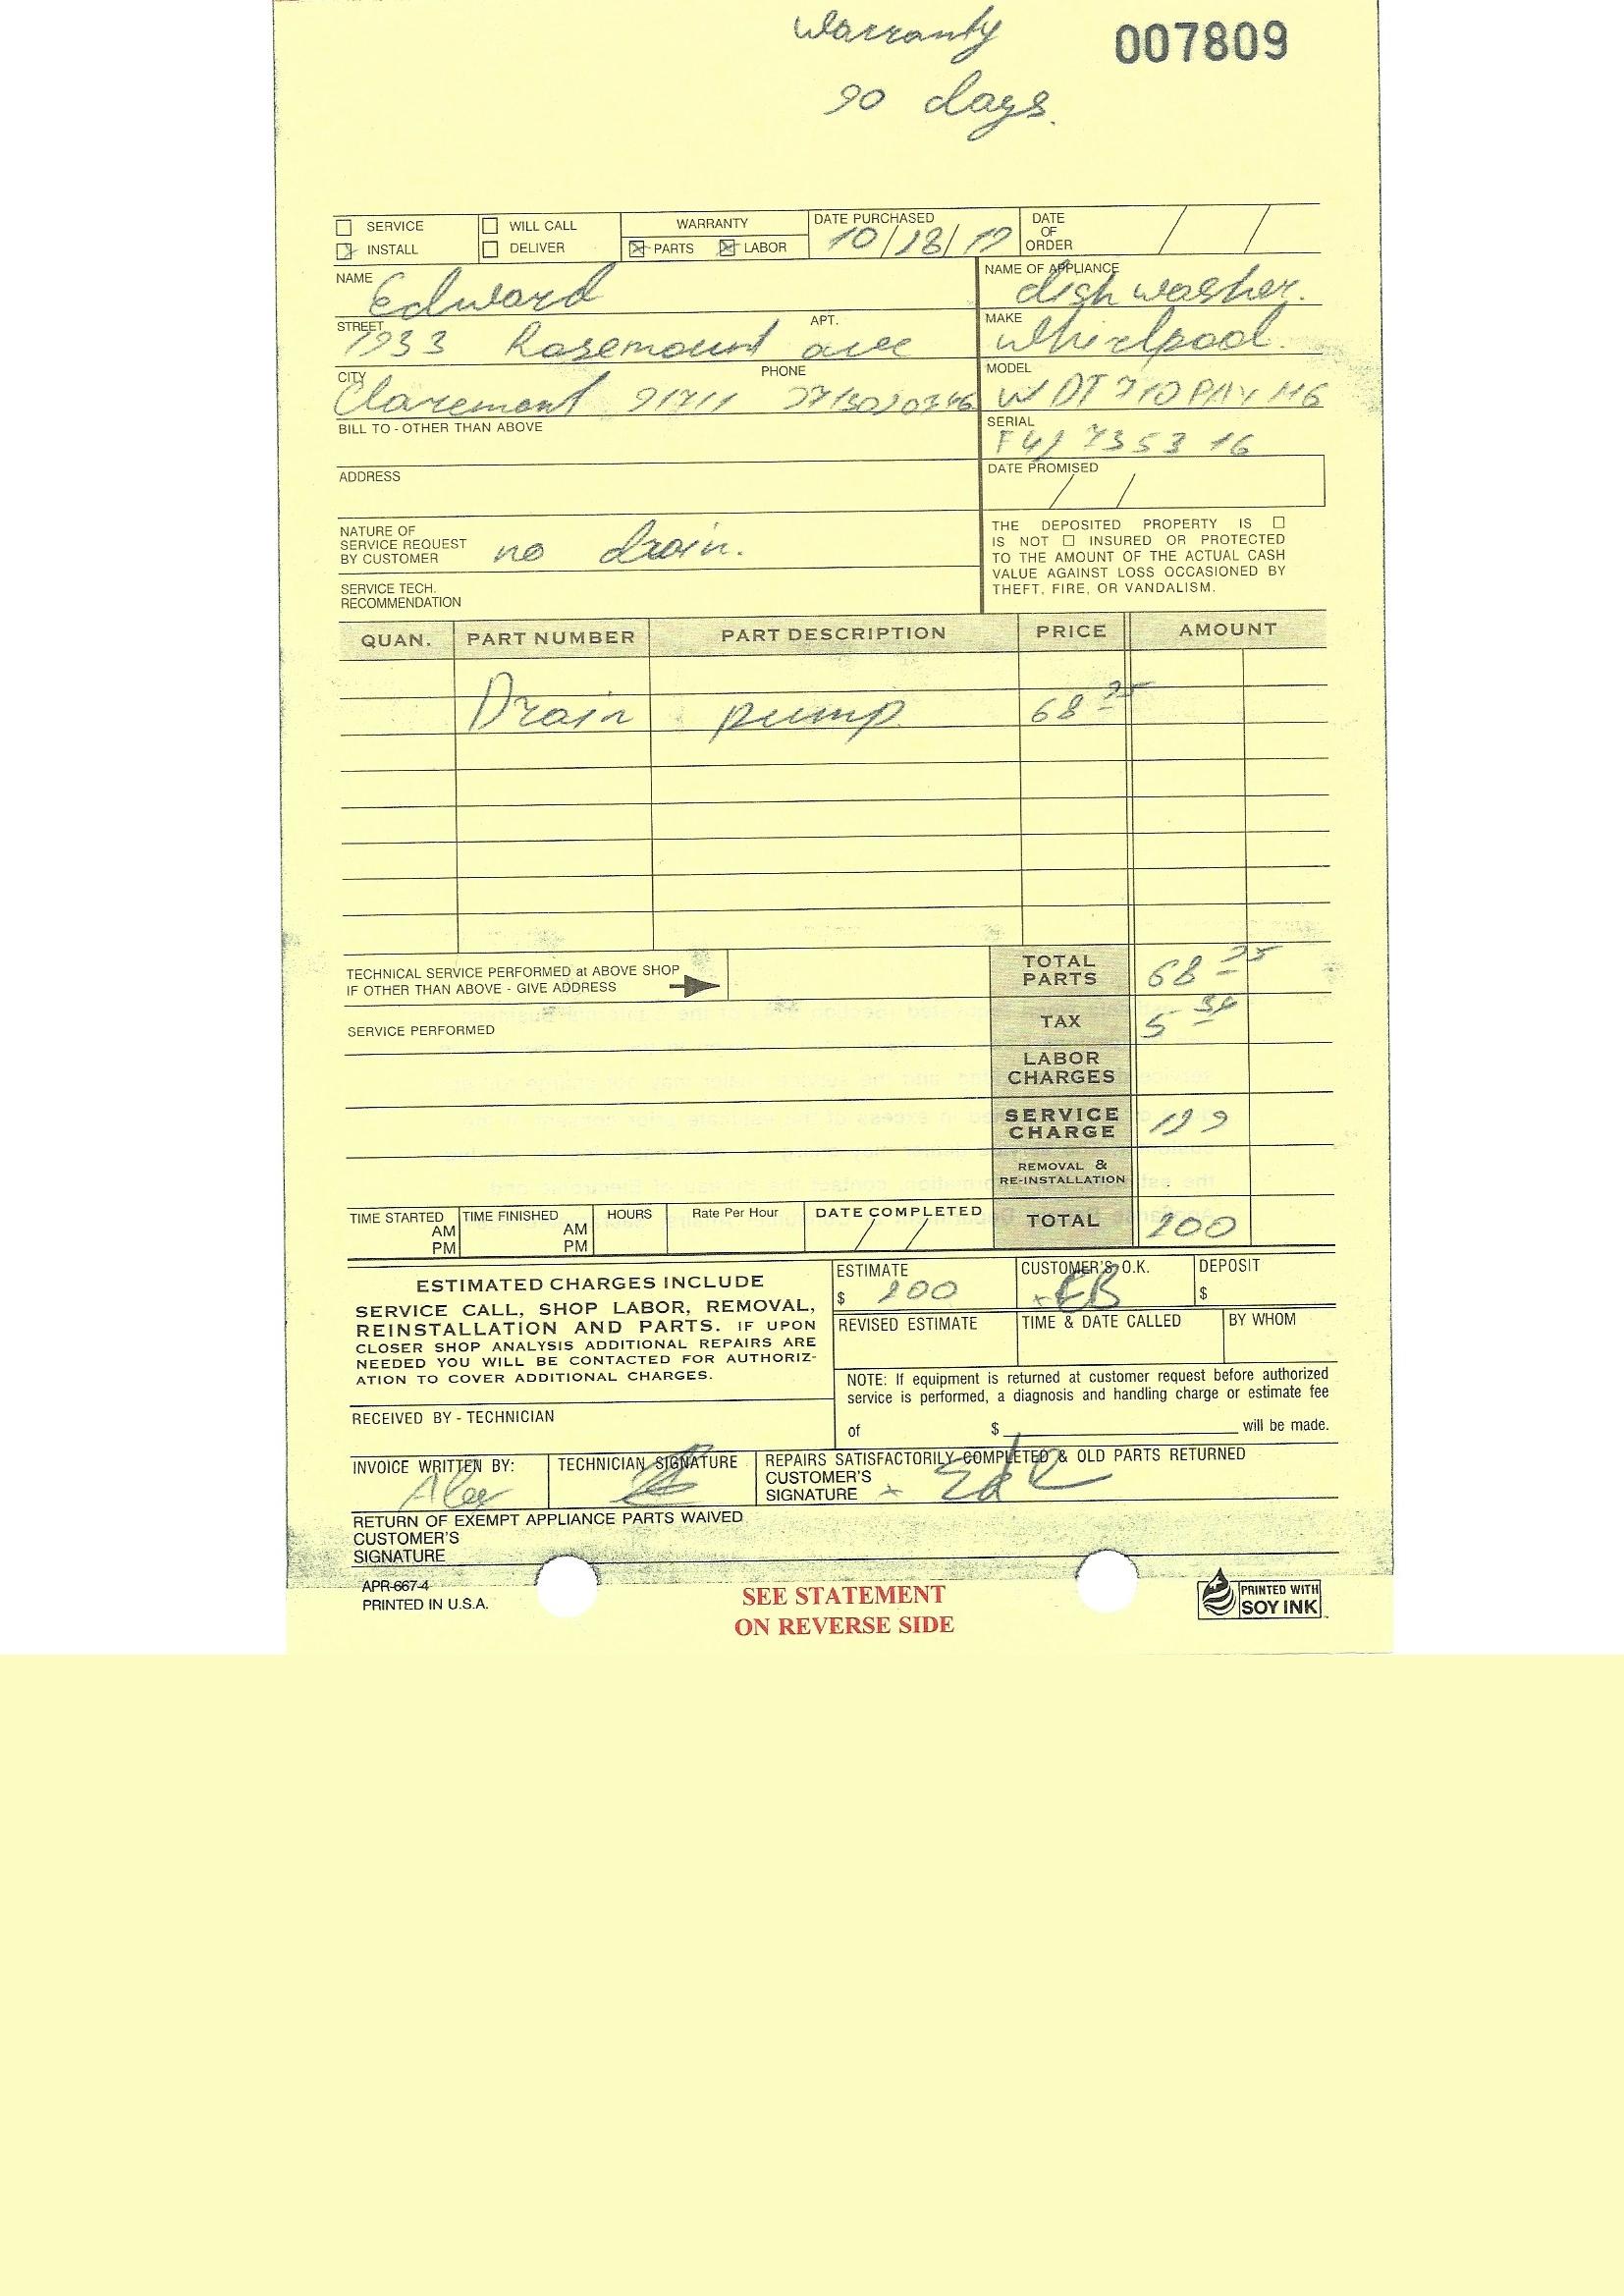 Warranty
007809
90 days.
SERVICE WILL CALL WARRANTY DATE PURCHASED DATE OF ORDER
INSTALL DELIVER PARTS LABOR 10/18/
NAME Edward NAME OF APPLIANCE dish washer.
STREET 1933 Rosemount ave APT. MAKE Whirlpool.
CITY Claremont 91711 PHONE MODEL
BILL TO - OTHER THAN ABOVE SERIAL
ADDRESS DATE PROMISED
NATURE OF
SERVICE REQUEST
BY CUSTOMER no drain.
SERVICE TECH.
RECOMMENDATION
THE DEPOSITED PROPERTY IS
IS NOT INSURED OR PROTECTED
TO THE AMOUNT OF THE ACTUAL CASH
VALUE AGAINST LOSS OCCASIONED BY
THEFT, FIRE, OR VANDALISM.
QUAN. PART NUMBER PART DESCRIPTION PRICE AMOUNT
Drain pump 68
TECHNICAL SERVICE PERFORMED at ABOVE SHOP
IF OTHER THAN ABOVE - GIVE ADDRESS
TOTAL PARTS 68
SERVICE PERFORMED
TAX 5
LABOR CHARGES
SERVICE CHARGE
REMOVAL & RE-INSTALLATION
TIME STARTED AM PM TIME FINISHED AM PM HOURS Rate Per Hour DATE COMPLETED TOTAL 200
ESTIMATED CHARGES INCLUDE
SERVICE CALL, SHOP LABOR, REMOVAL,
REINSTALLATION AND PARTS. IF UPON
CLOSER SHOP ANALYSIS ADDITIONAL REPAIRS ARE
NEEDED YOU WILL BE CONTACTED FOR AUTHORIZ-
ATION TO COVER ADDITIONAL CHARGES.
ESTIMATE $ 200 CUSTOMER'S O.K. EB DEPOSIT $
REVISED ESTIMATE TIME & DATE CALLED BY WHOM
NOTE: If equipment is returned at customer request before authorized
service is performed, a diagnosis and handling charge or estimate fee
of $ will be made.
RECEIVED BY - TECHNICIAN
INVOICE WRITTEN BY: Alex TECHNICIAN SIGNATURE REPAIRS SATISFACTORILY COMPLETED & OLD PARTS RETURNED
CUSTOMER'S
SIGNATURE
RETURN OF EXEMPT APPLIANCE PARTS WAIVED
CUSTOMER'S
SIGNATURE
APR-667-4
PRINTED IN U.S.A.
SEE STATEMENT
ON REVERSE SIDE
PRINTED WITH
SOY INK